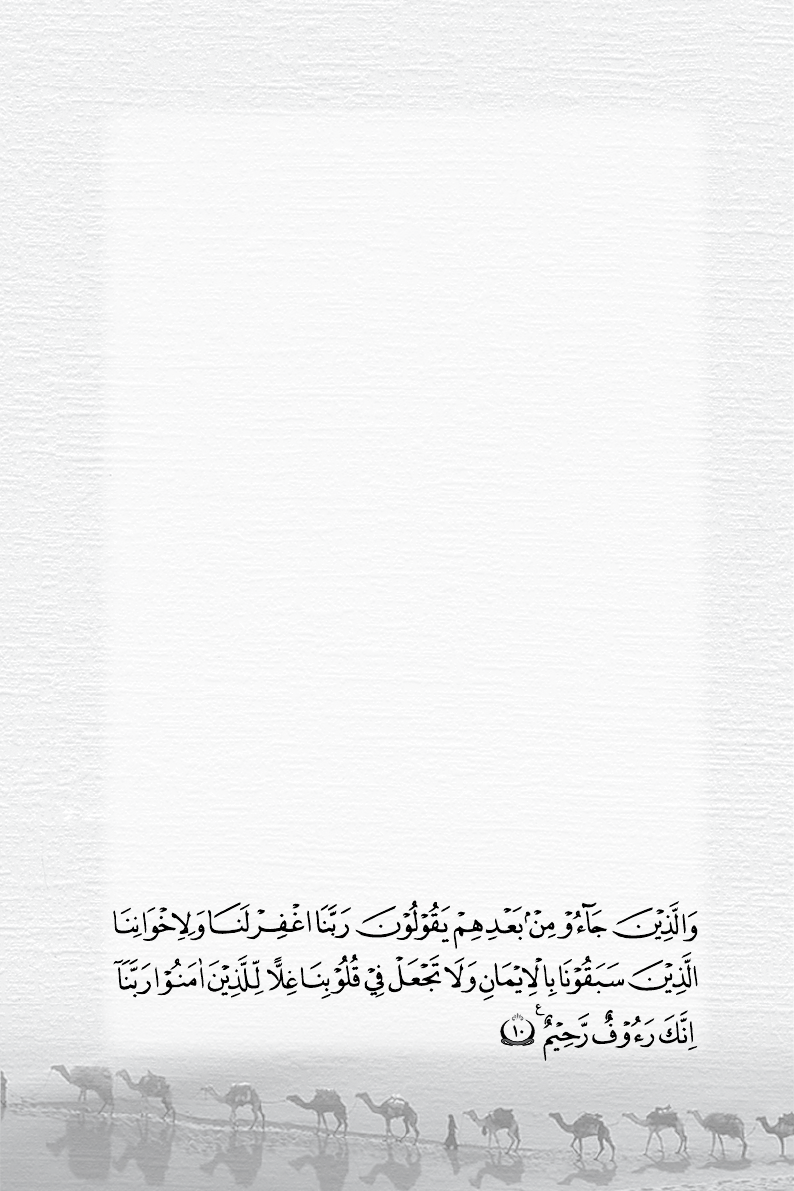 وَالَّذِيْنَ جَآءُوْ مِنْۢ بَعْدِهِمْ يَقُوْلُوْنَ رَبَّنَا اغْفِرْ لَنَا وَلِاِخْوَانِنَا
الَّذِيْنَ سَبَقُوْنَا بِالْاِيْمَانِ وَلَا تَجْعَلْ فِيْ قُلُوْبِنَا غِلًّا لِّلَّذِيْنَ اٰمَنُوْا رَبَّنَآ
اِنَّكَ رَءُوْفٌ رَّحِيْمٌ ࣖ ۝١٠